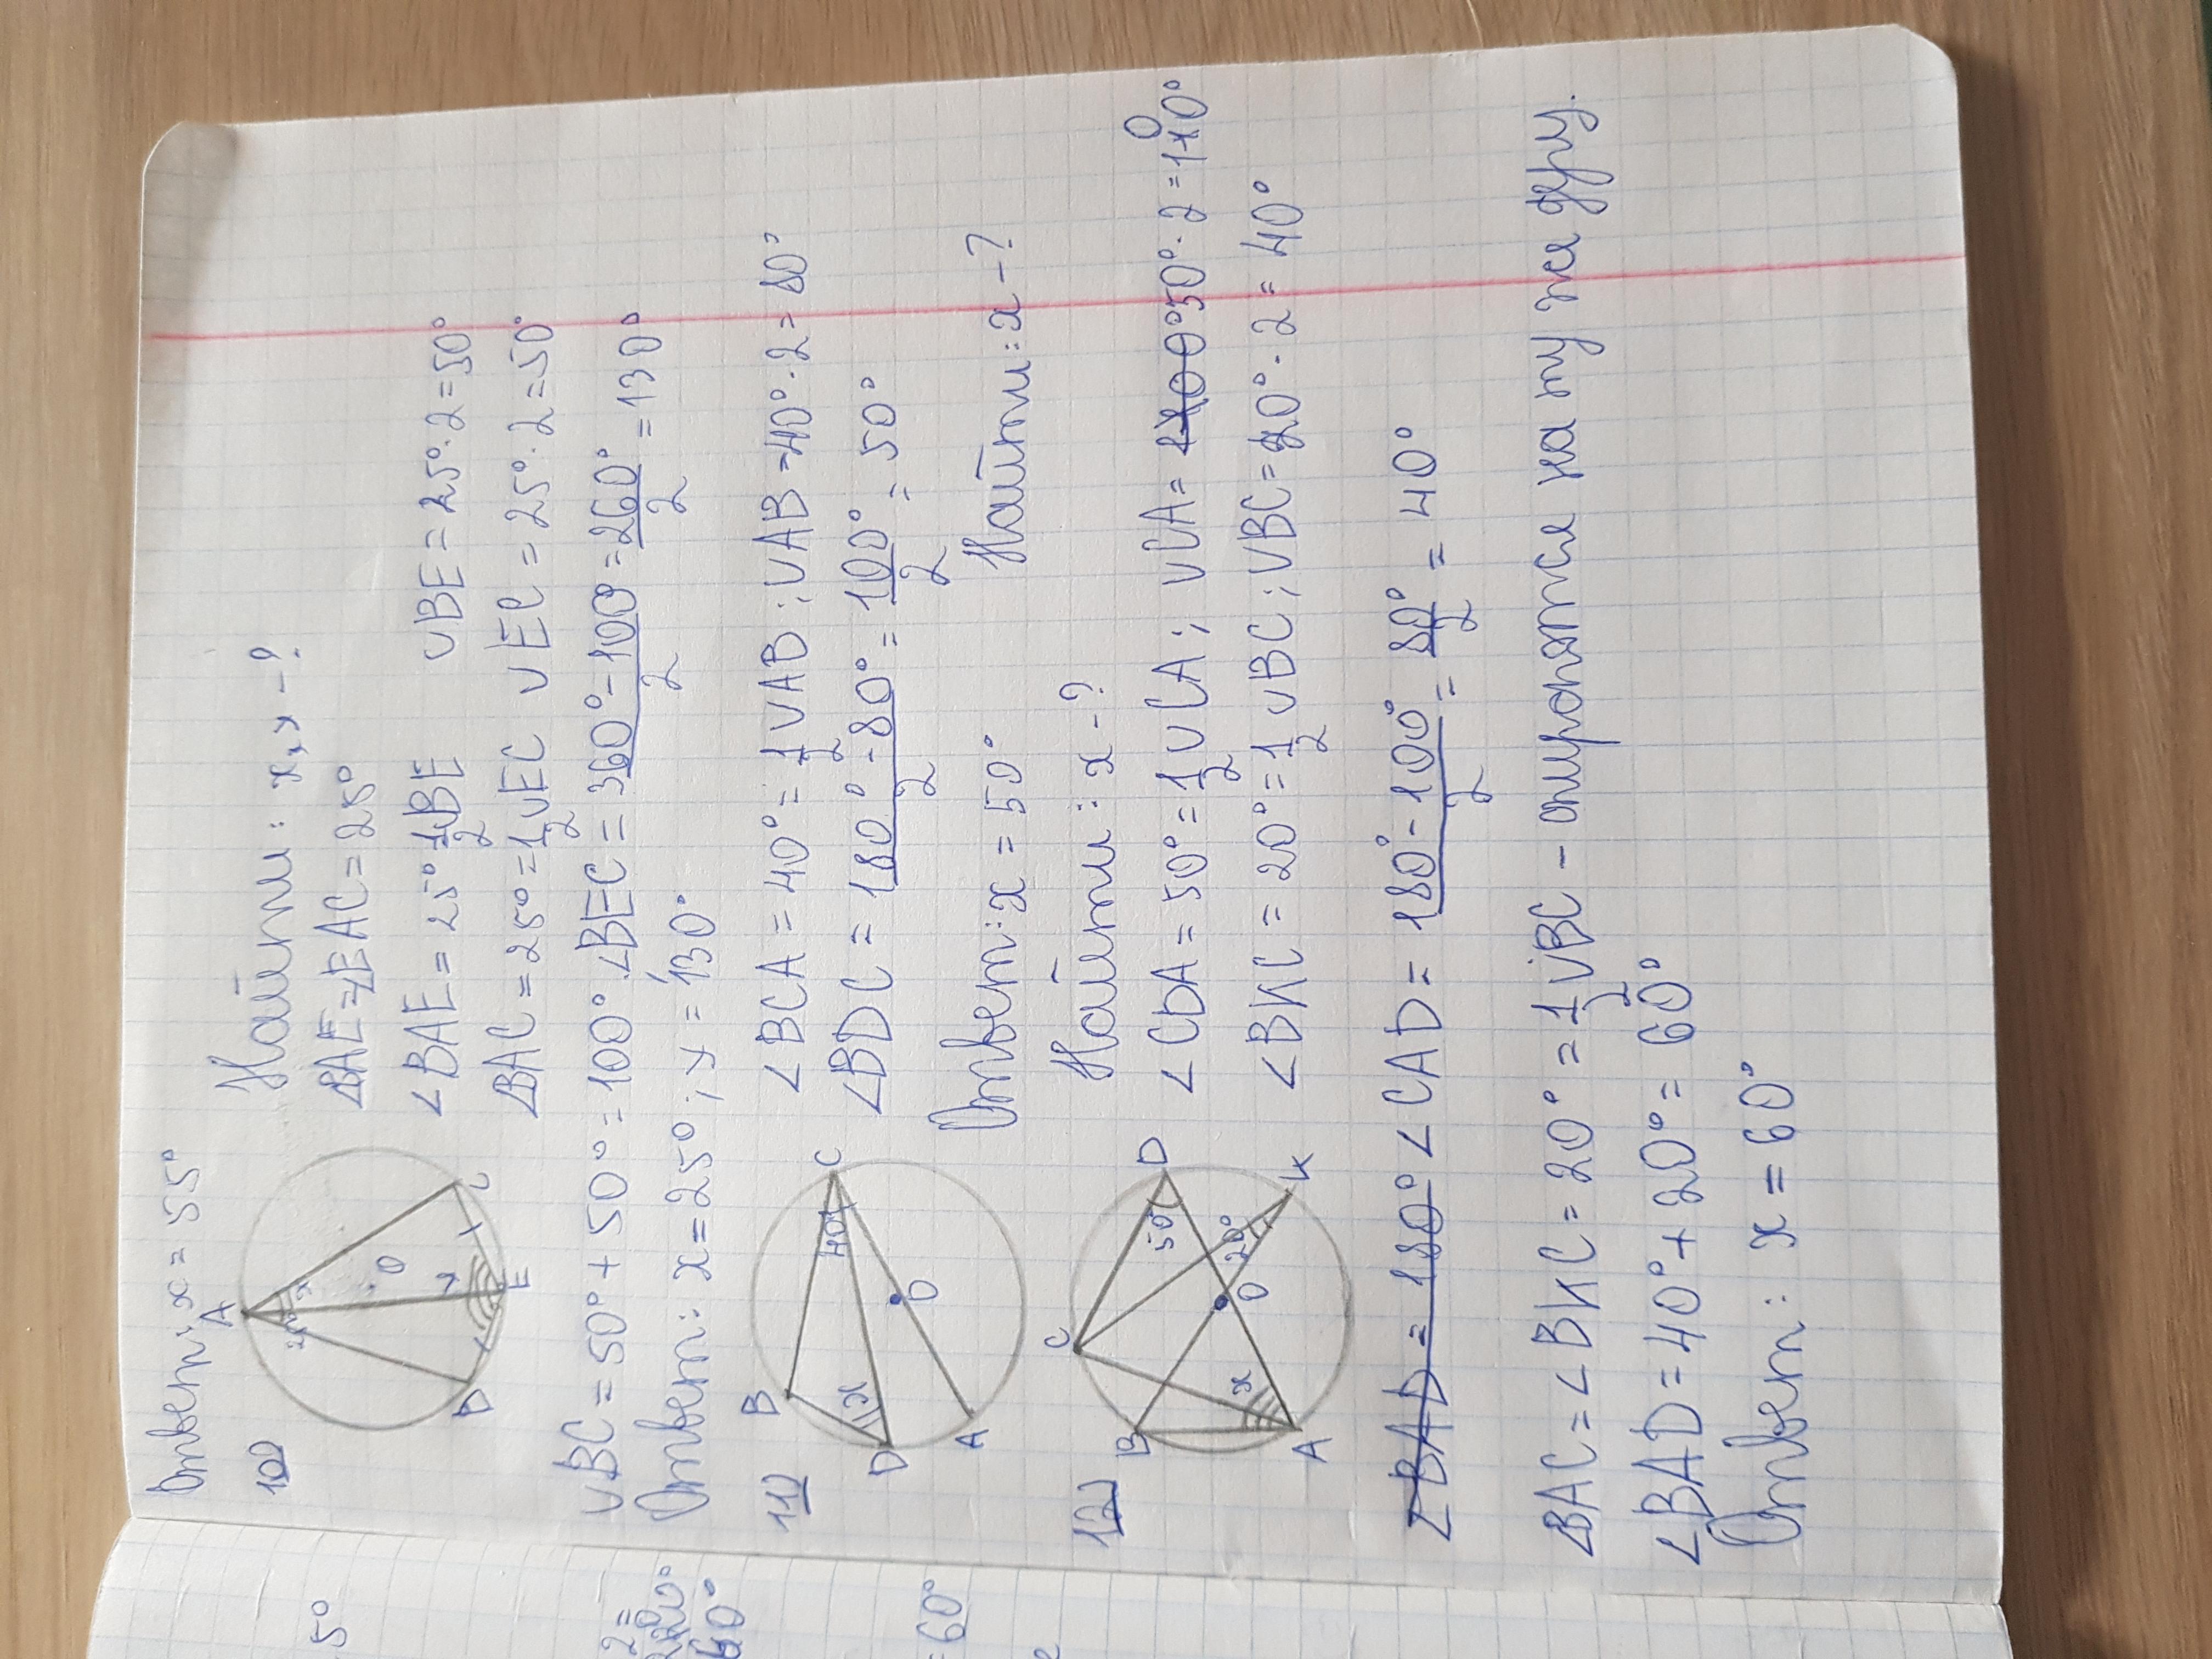 Ответ: x = 55°
10)
A
25°
x
O
y
D
E
C
Найти: x, y -?
∠BAE = ∠EAC = 25°
∠BAE = 25° 1/2 ∪BE ∪BE = 25° · 2 = 50°
∠BAC = 25° = 1/2 ∪EC ∪EC = 25° · 2 = 50°
∪BC = 50° + 50° = 100° . ∠BEC = 360° - 100°/2 = 260°/2 = 130°
Ответ: x = 25° ; y = 130°
11)
B
C
40°
x
O
D
A
∠BCA = 40° = 1/2 ∪AB ; ∪AB = 40° · 2 = 80°
∠BDC = 180° - 80°/2 = 100°/2 = 50°
Ответ: x = 50° Найти: x -?
12)
C
D
50°
B
O
20°
K
x
A
Найти: x -?
∠CDA = 50° = 1/2 ∪CA ; ∪CA = 50° · 2 = 100°
∠BKC = 20° = 1/2 ∪BC ; ∪BC = 20° · 2 = 40°
∠BAD = 180° ∠CAD = 180° - 100°/2 = 80°/2 = 40°
∠BAC = ∠BKC = 20° = 1/2 ∪BC - опираются на ту же дугу.
∠BAD = 40° + 20° = 60°
Ответ: x = 60°
5°
2 =
60°
= 60°